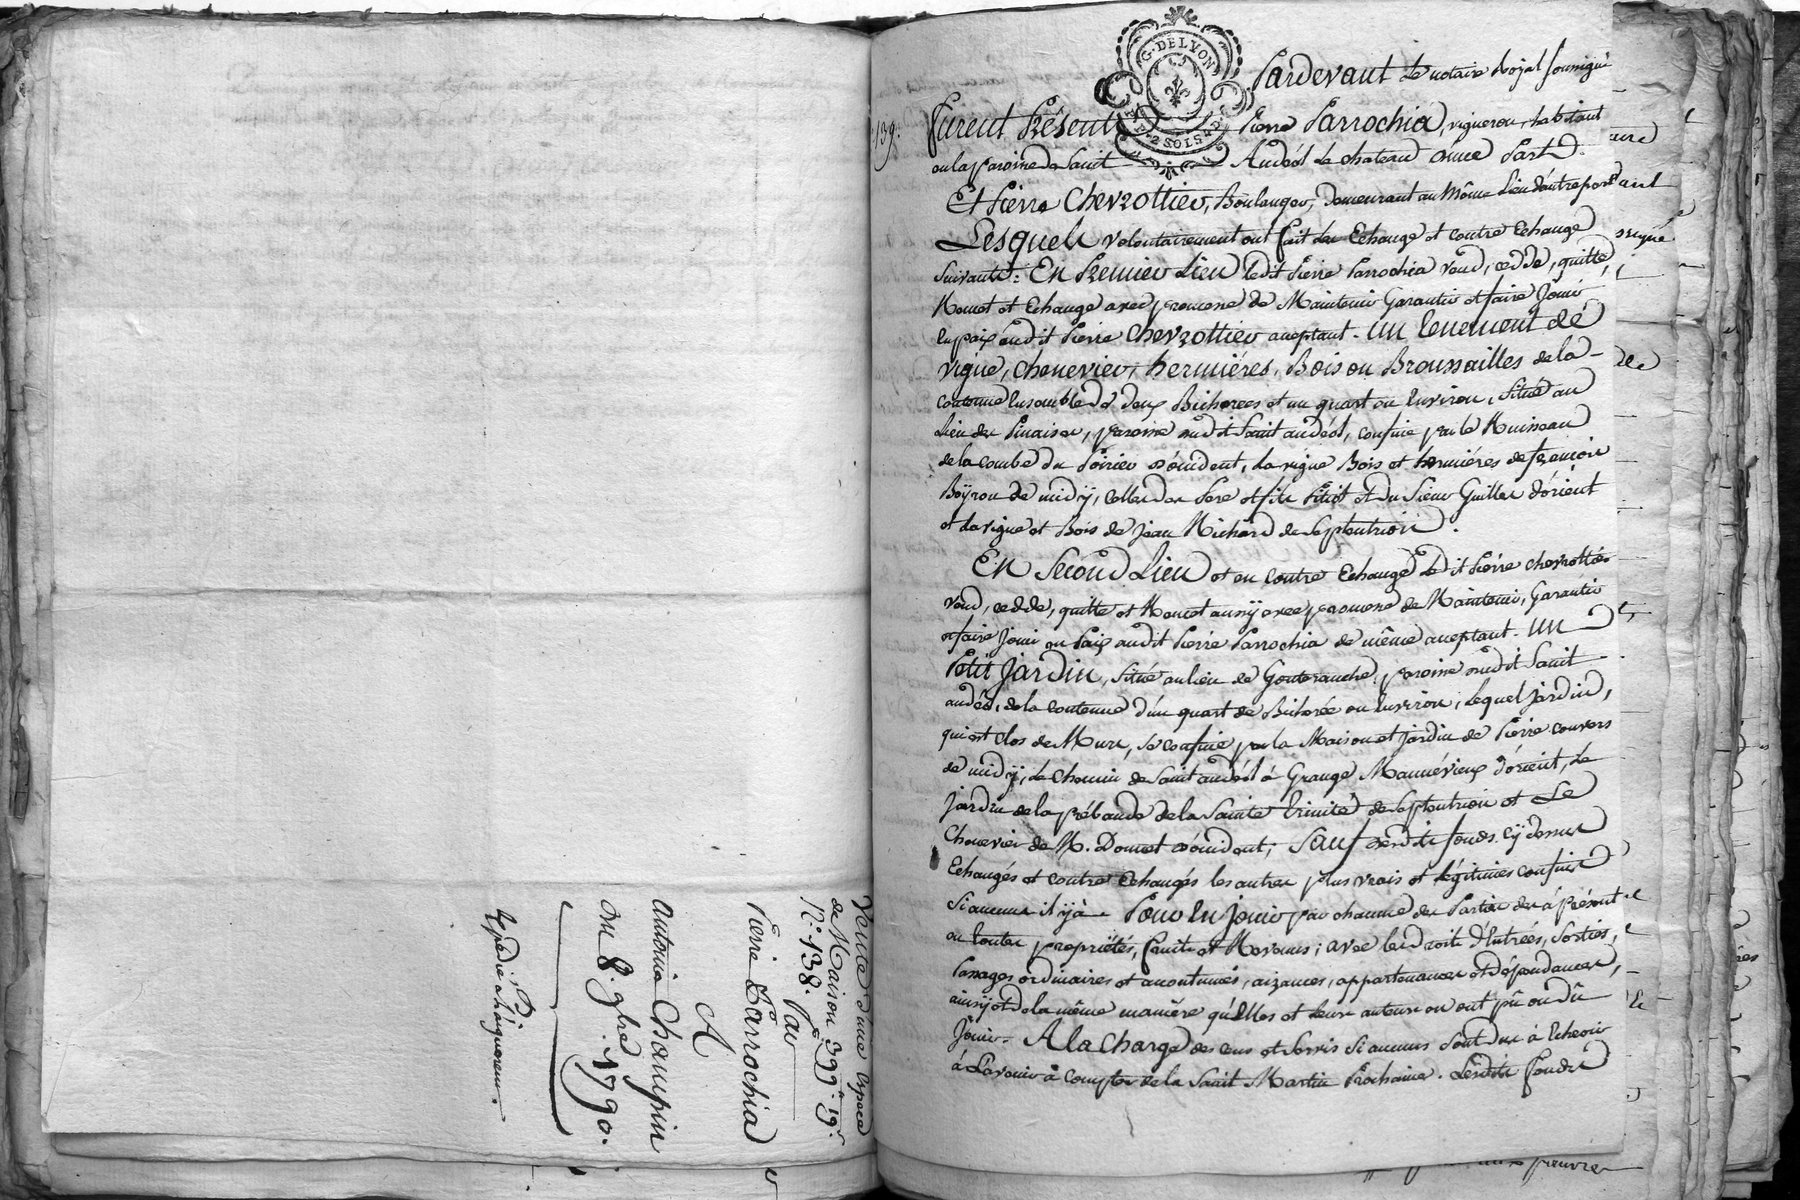 Vente d'une Espace
de Maison 399.# 19.s
N.º 138. Par
Pierre Parrochia
A
Antoine Chaupin
Du 8. 9bre 1790.
Expédié à l'acquereur.
G. DE LYON
2 SOLS
139.
Pardevant Le notaire Royal soussigné
furent Présents Pierre Parrochia, vigneron, habitant
en la paroisse de Saint Andéol Le chateau d'une Part.
Et Pierre Chevrottier, Boulanger, Demeurant au Même Lieu d'autre part
Lesquels volontairement ont fait les Echange et contre Echange
Suivants: En Premier Lieu ledit Pierre Parrochia vend, cedde, quitte,
Remet et Echange avec promesse de Maintenir Garantir et faire Jouir
En paix audit Pierre Chevrottier acceptant. Un Tenement de
vigne, Chenevier, hermiéres, Bois ou Broussailles de la
contenue Ensemble de deux Bicherées et un quart ou Environ, Situé au
Lieu du Pinaison, paroisse dudit Saint andéol, confiné par le Ruisseau
de la combe du Poirier d'occident, La vigne Bois et hermiéres de françois
Boÿron de midÿ, celles des Pere et fils Pitiot et du Sieur Guiller d'orient
et La vigne et Bois de Jean Richard de Septentrion.
En Second Lieu et en contre Echange Ledit Pierre chevrottier
vend, cedde, quitte et Remet aussÿ avec promesse de Maintenir, Garantir
et faire Jouir en Paix audit Pierre Parrochia de même acceptant. Un
Petit Jardin, Situé au lieu de Gouteranche, paroisse dudit Saint
andéol, de la contenue d'un quart de Bicherée ou Environ, Lequel Jardin,
qui est clos de Murs, se confine par la Maison et Jardin de Pierre couvers
de midÿ, Le Chemin de Saint andéol à Grange Mannévieux d'orient, Le
Jardin de la prébande de la Sainte Trinité de Septentrion et Le
Chenevier de M. Donnet d'occident; Sauf desdits fonds cÿ dessus
Echangés et contre Echangés les autres plus vrais et légitimes confins
Si aucuns il y à. Pour En Jouir par chacune des Parties dès à présent
en toutes propriétés, fruits et Revenus; avec les droits d'Entrées, Sorties,
Passages ordinaires et accoutumés, aizances, appartenances et dépendances,
ainsÿ et de la même maniére qu'Elles et leurs auteurs en ont pû ou dû
Jouir. A la Charge des cens et Servis Si aucuns Sont Dus à Echeoir
à L'avenir à Compter de la Saint Martin Prochaine. Lesdits fonds